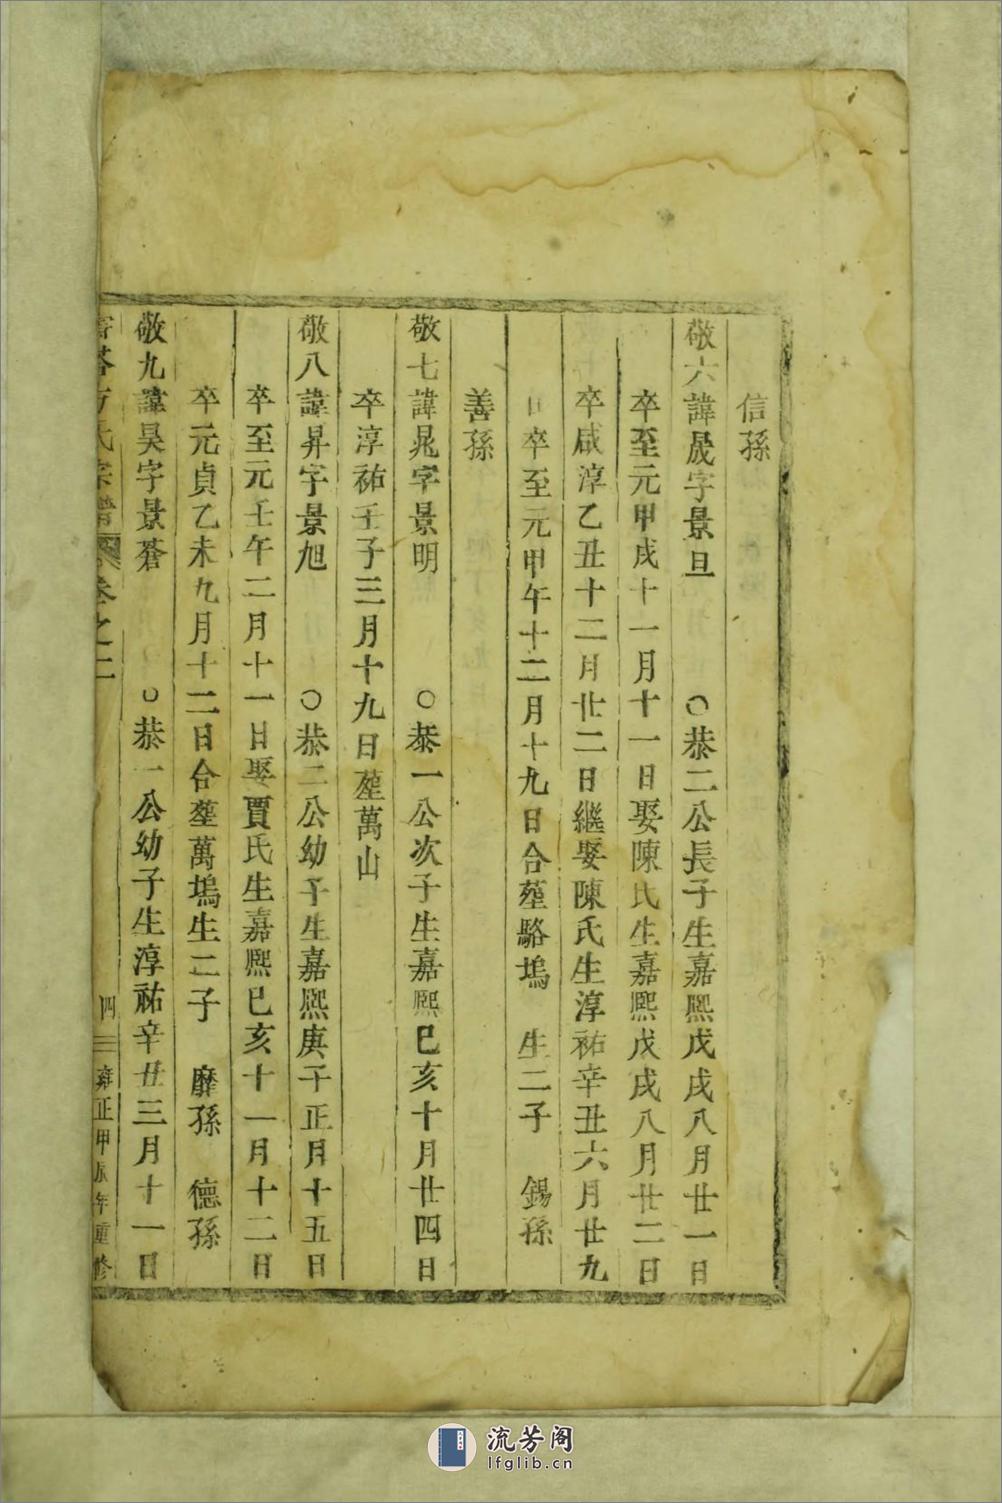 信孫
敬六諱晟字景旦 ○恭二公長子生嘉熙戊戌八月廿一日
卒至元甲戌十一月十一日娶陳氏生嘉熙戊戌八月廿二日
卒咸淳乙丑十二月廿二日繼娶陳氏生淳祐辛丑六月廿九
日卒至元甲午十二月十九日合塟駱塢 生二子 錫孫
善孫
敬七諱晁字景明 ○恭一公次子生嘉熙己亥十月廿四日
卒淳祐壬子三月十九日塟萬山
敬八諱昇字景旭 ○恭二公幼子生嘉熙庚子正月十五日
卒至元壬午二月十一日娶賈氏生嘉熙己亥十一月十二日
卒元貞乙未九月十二日合塟萬塢生二子 靡孫 德孫
敬九諱昊字景蒼 ○恭一公幼子生淳祐辛丑三月十一日
方氏宗譜 卷之二 四 雍正甲辰年重修
流芳阁
lfglib.cn